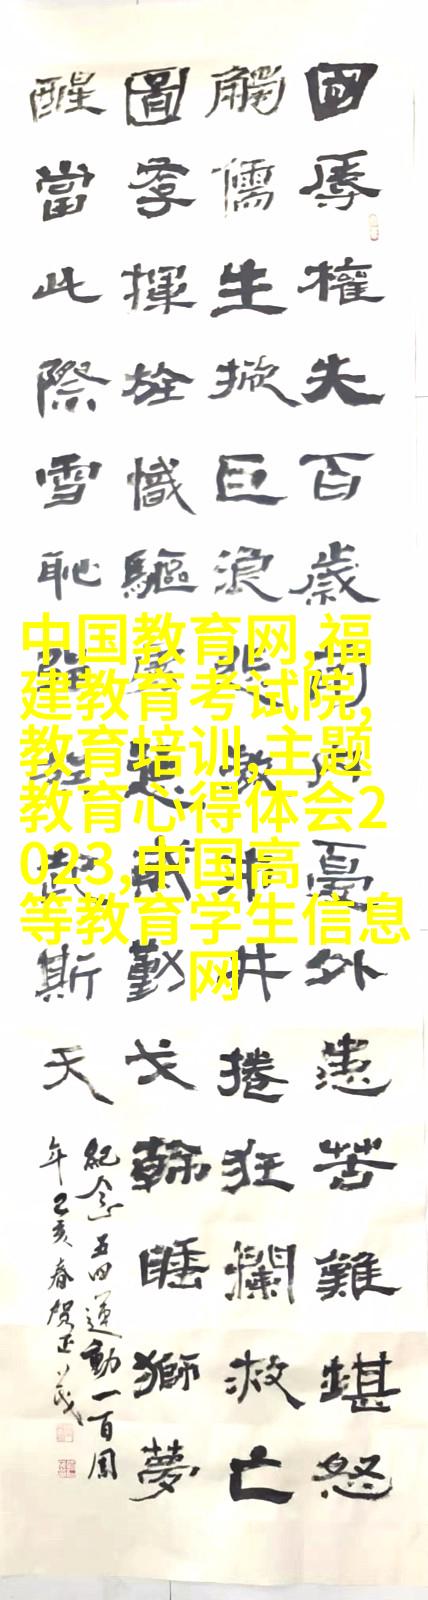 國辱權失百歲間內憂外患苦難堪怒
觸儒生掀巨浪井捲狂瀾救亡
圖存揮旌幟驅戈斡睡獅夢
醒當此際雪恥斯天
紀念五四運動一百周
年己亥春賀正茂
中国教育网,福
建教育考试院,
教育培训,主题
教育心得体会2
023,中国高
等教育学生信息
网